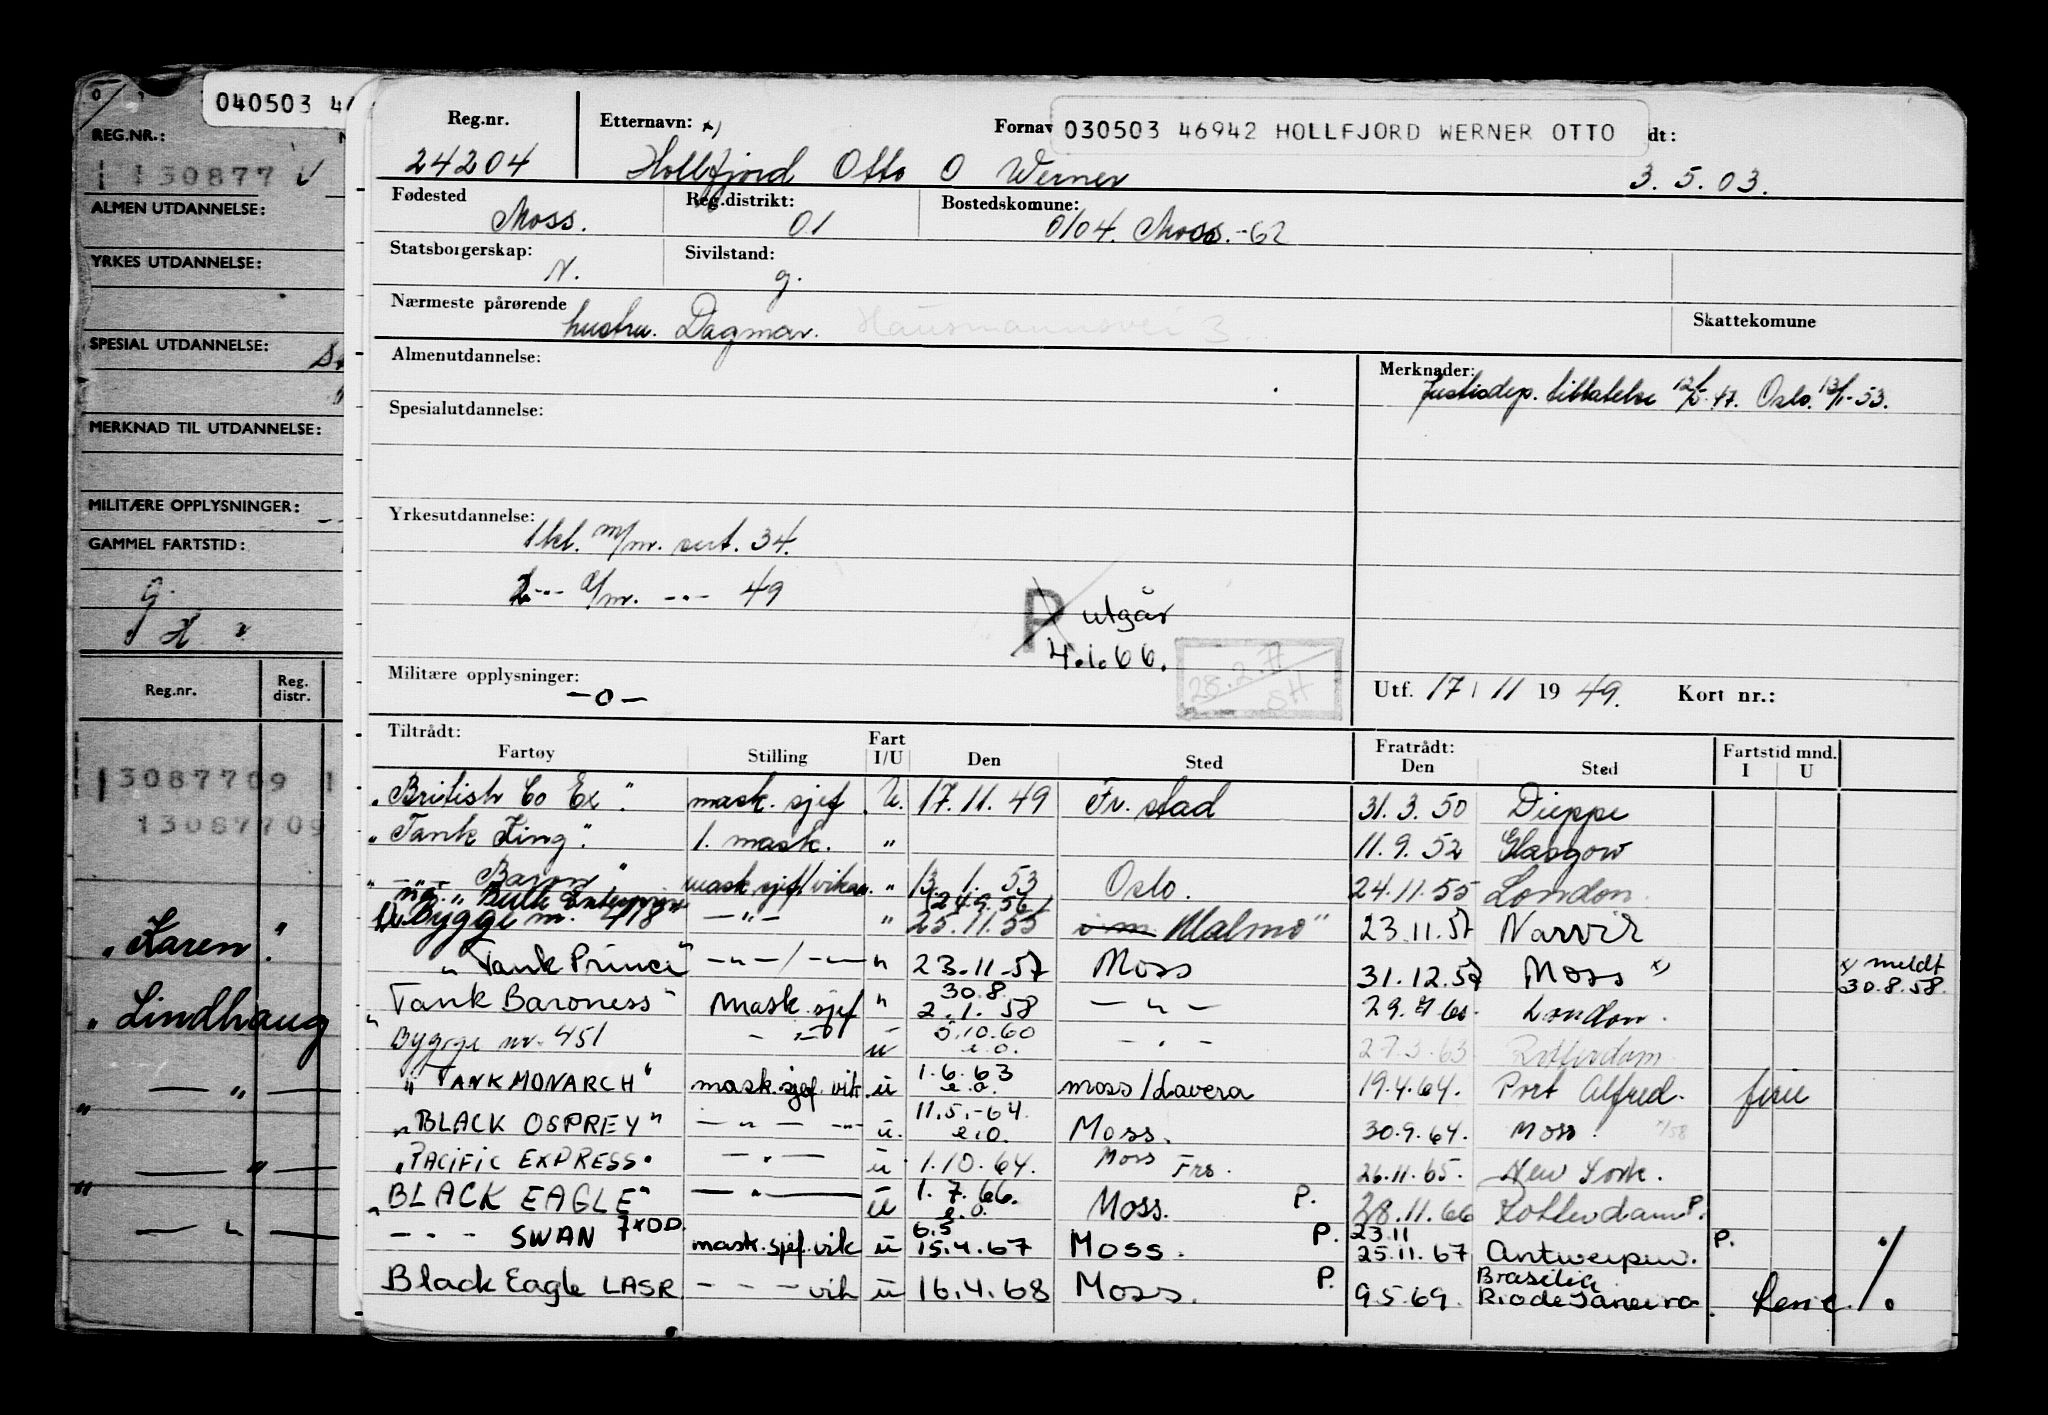 040503 46
REG.NR.:
130877
ALMEN UTDANNELSE:
YRKES UTDANNELSE:
SPESIAL UTDANNELSE:
MERKNAD TIL UTDANNELSE:
MILITÆRE OPPLYSNINGER:
GAMMEL FARTSTID:
Reg.nr. Reg. distr.
13087709 1
13087709
"Karen"
"Lindhaug
— " —
— " —
— " —
Reg.nr. Etternavn: x) Fornav 030503 46942 HOLLFJORD WERNER OTTO dt:
24204 Hollfjord Otto O Werner 3. 5. 03.
Fødested Reg.distrikt: Bostedskomune:
Moss. 01 0104. Moss.-62
Statsborgerskap: Sivilstand:
N. g.
Nærmeste pårørende hustru. Dagmar. Hausmannsvei 3 Skattekomune
Almenutdannelse: Merknader:
Justisdep. tillatelse 12/6-47. Oslo. 13/1-53.
Spesialutdannelse:
Yrkesutdannelse:
1 kl. m/m. sert. 34.
2 --- d/m. --- 49
P utgår
4.1.66.
28.2.
SH
Militære opplysninger: —o— Utf. 17 / 11 19 49. Kort nr.:
Tiltrådt: Fart Fratrådt: Fartstid mnd.
Fartøy Stilling I/U Den Sted Den Sted I U
"British Co Ex". mask. sjef U. 17.11.49 Fr.stad 31.3.50 Dieppe
"Tank King". 1. mask. " 11.9.52 Glasgow
" —"— Baron" mask.sjef/vikar. " 13.1.53 Oslo. 24.11.55 London.
"Bulk Enterprise" (24.9.56)
Bygge nr. 418 —"— " 25.11.55 i m "Malmø" 23.11.57 Narvik
"Tank Prince" —"—/—— " 23.11.57 Moss 31.12.57 Moss x) x) meldt 30.8.58.
30.8.
"Tank Baroness" Mask.sjef " 2.1.58 —"— 29.7.60. London.
Bygge nr. 451 —"— u 5.10.60 e.o. —"— 27.3.63 Rotterdam
"TANK MONARCH" mask.sjef. vik. u 1.6.63 e.o. moss/Lavera 19.4.64. Port Alfred. ferie
"BLACK OSPREY" —"— —"— u. 11.5.-64. e.o. Moss. 30.9.64. Moss.
"PACIFIC EXPRESS" —"— u 1.10.64. Moss Frs. 26.11.65. New York.
"BLACK EAGLE" —"— u 1.7.66. e.o. Moss. P. 28.11.66 Rotterdam P.
6.5 23.11
- - - SWAN 7XDD mask.sjef.vik u 15.4.67 Moss. P. 25.11.67 Antwerpen. P.
Black Eagle LASR - - - vik u 16.4.68 Moss. P. 9.5.69. Brasilia Rio de Janeiro.